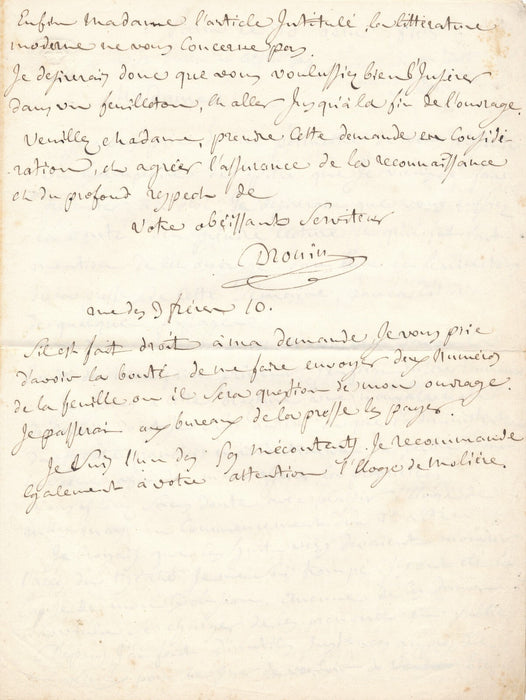 Enfin Madame l'article Intitulé, la littérature
moderne ne vous concerne pas.
Je désirerais donc que vous voulussiez bien l'Insérer
dans un feuilleton, et aller Jusqu'à la fin de l'ouvrage.
Veuillez, Madame, prendre cette demande en Considé-
-ration, et agréer l'assurance de la reconnaissance
et du profond respect de
votre obéissant Serviteur
Drouin
rue des 3 frères 10.
S'il est fait droit à ma demande Je vous prie
d'avoir la bonté de me faire envoyer deux Numéros
de la feuille où il Sera question de mon ouvrage.
Je passerai aux bureaux de la presse les payer.
Je Suis l'un des mécontents. Je recommande
également à votre attention l'Eloge de Molière.